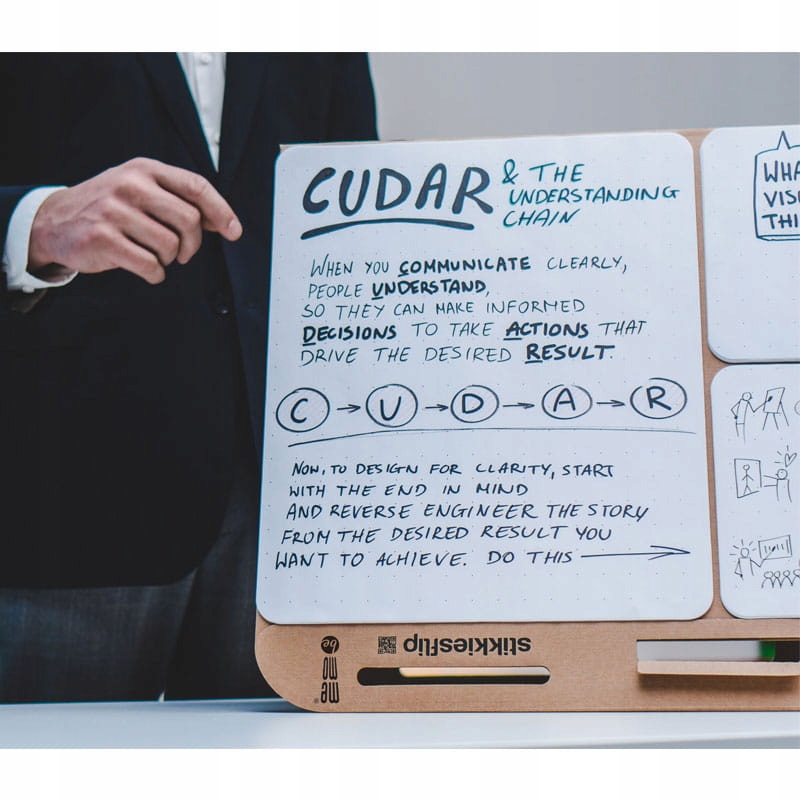 CUDAR & THE
UNDERSTANDING
CHAIN
WHEN YOU COMMUNICATE CLEARLY,
PEOPLE UNDERSTAND,
SO THEY CAN MAKE INFORMED
DECISIONS TO TAKE ACTIONS THAT
DRIVE THE DESIRED RESULT.
C → U → D → A → R
NOW, TO DESIGN FOR CLARITY, START
WITH THE END IN MIND
AND REVERSE ENGINEER THE STORY
FROM THE DESIRED RESULT YOU
WANT TO ACHIEVE. DO THIS →
VIS
THI
stikkiesflip
be
MO
ME